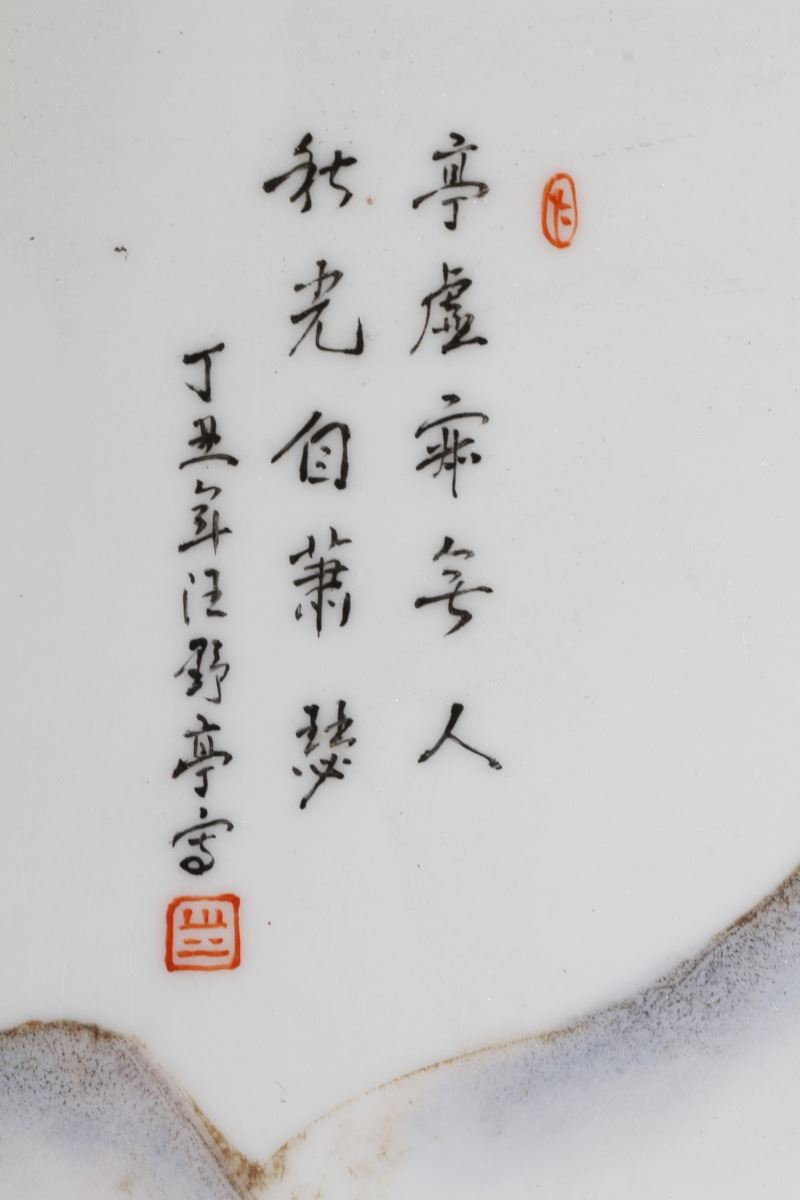 亭虚寂無人
秋光自蕭瑟
丁丑年汪野亭寫